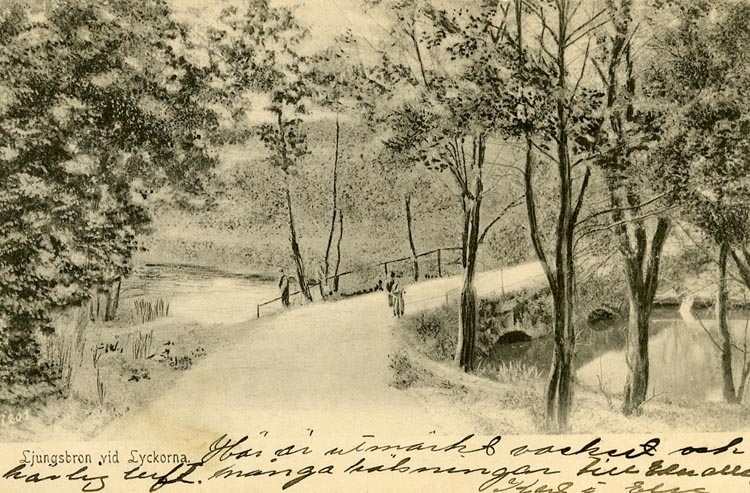 Ljungsbron vid Lyckorna.
Här är utmärkt vackert och
härlig luft. många hälsningar till Eder alla